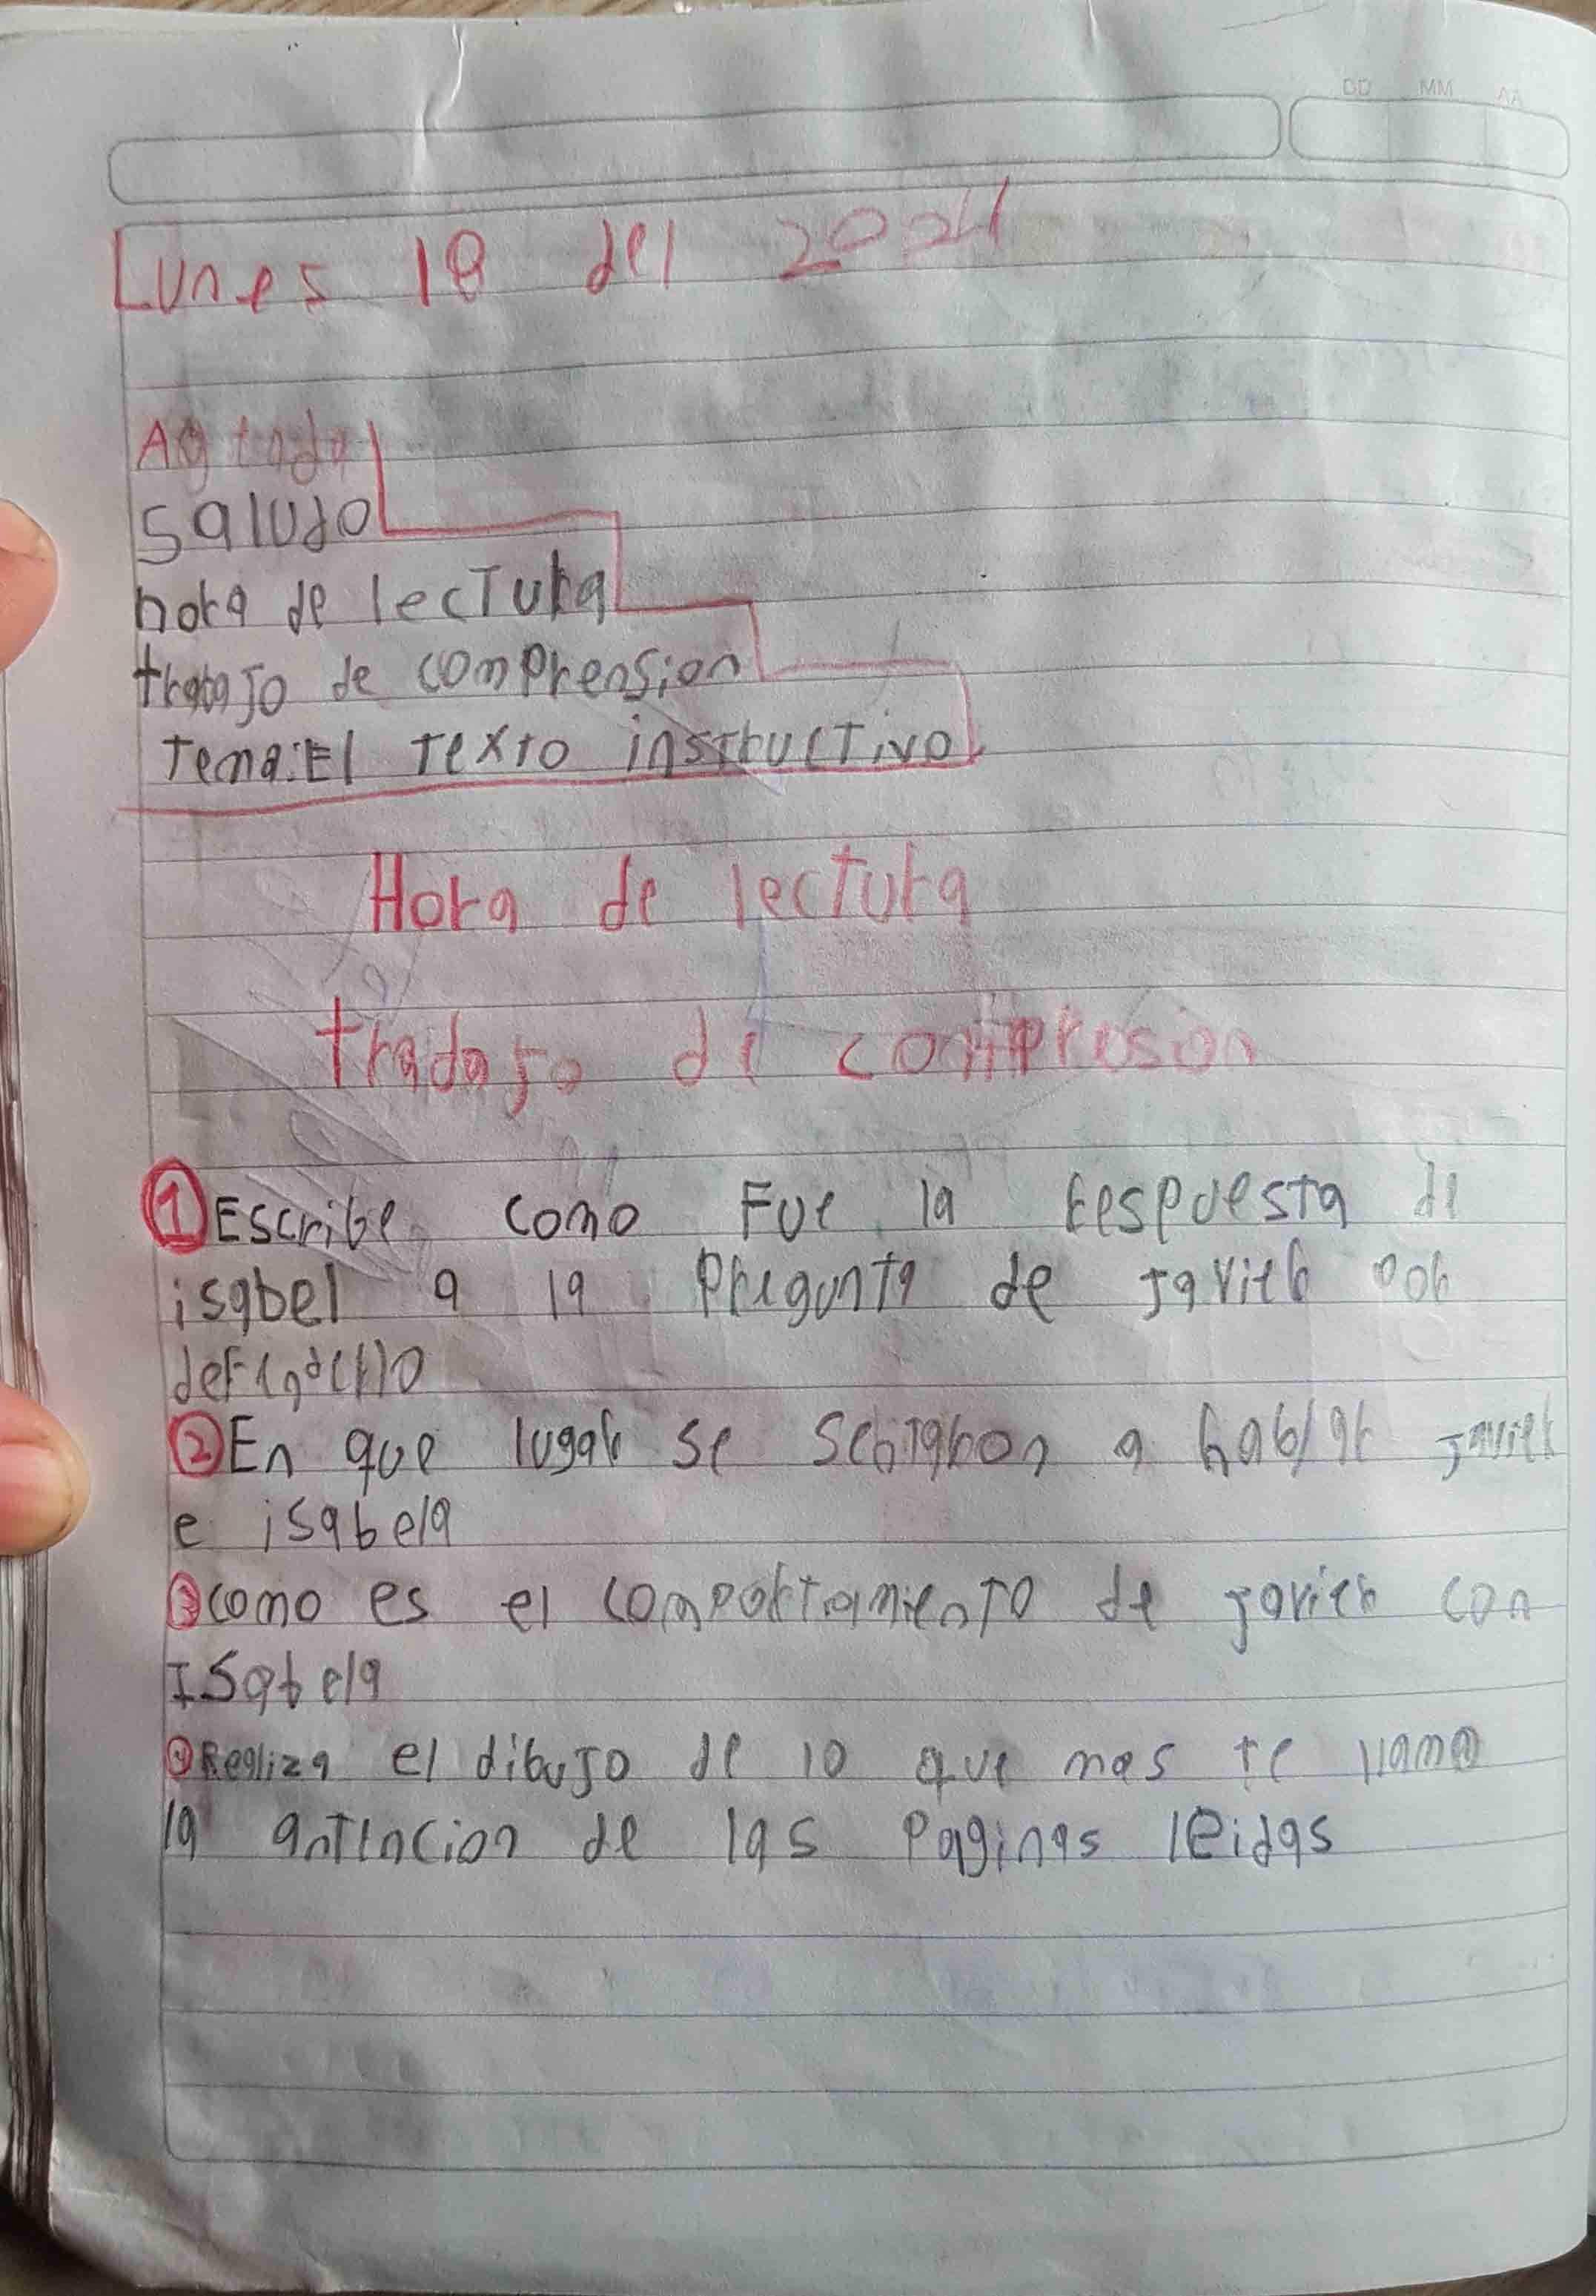 DD MM AA
Lunes 18 del 2024
Agenda
Saludo
hora de lectura
trabajo de comprension
Tema: El Texto instructivo
Hora de lectura
tradajo de compresion
1 Escribe como Fue la respuesta de
isabel a la pregunta de javier por
defenderlo
2 En que lugar se sentaron a hablar javier
e isabela
3 como es el comportamiento de javier con
Isabela
4 Realiza el dibujo de lo que mas te llamo
la antencion de las paginas leidas